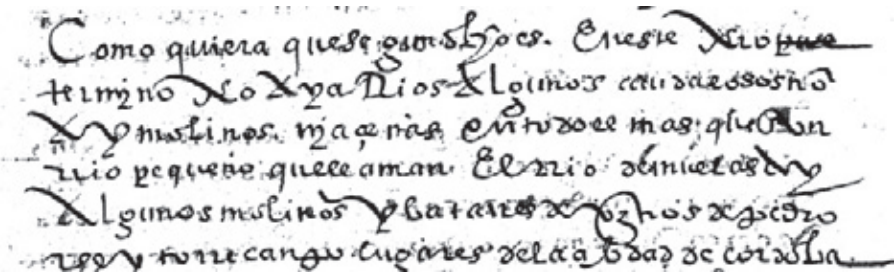 Como quiera que es. En este
termino no Aya Rios Algunos caudalosos no
Ay molinos. ni açeñas en todo el mas que en un
rrio pequeño que llaman El rrio de ay
Algunos molinos y batanes de vzºs de pedro
y torrecanpo lugares de la çibdad de cordoba